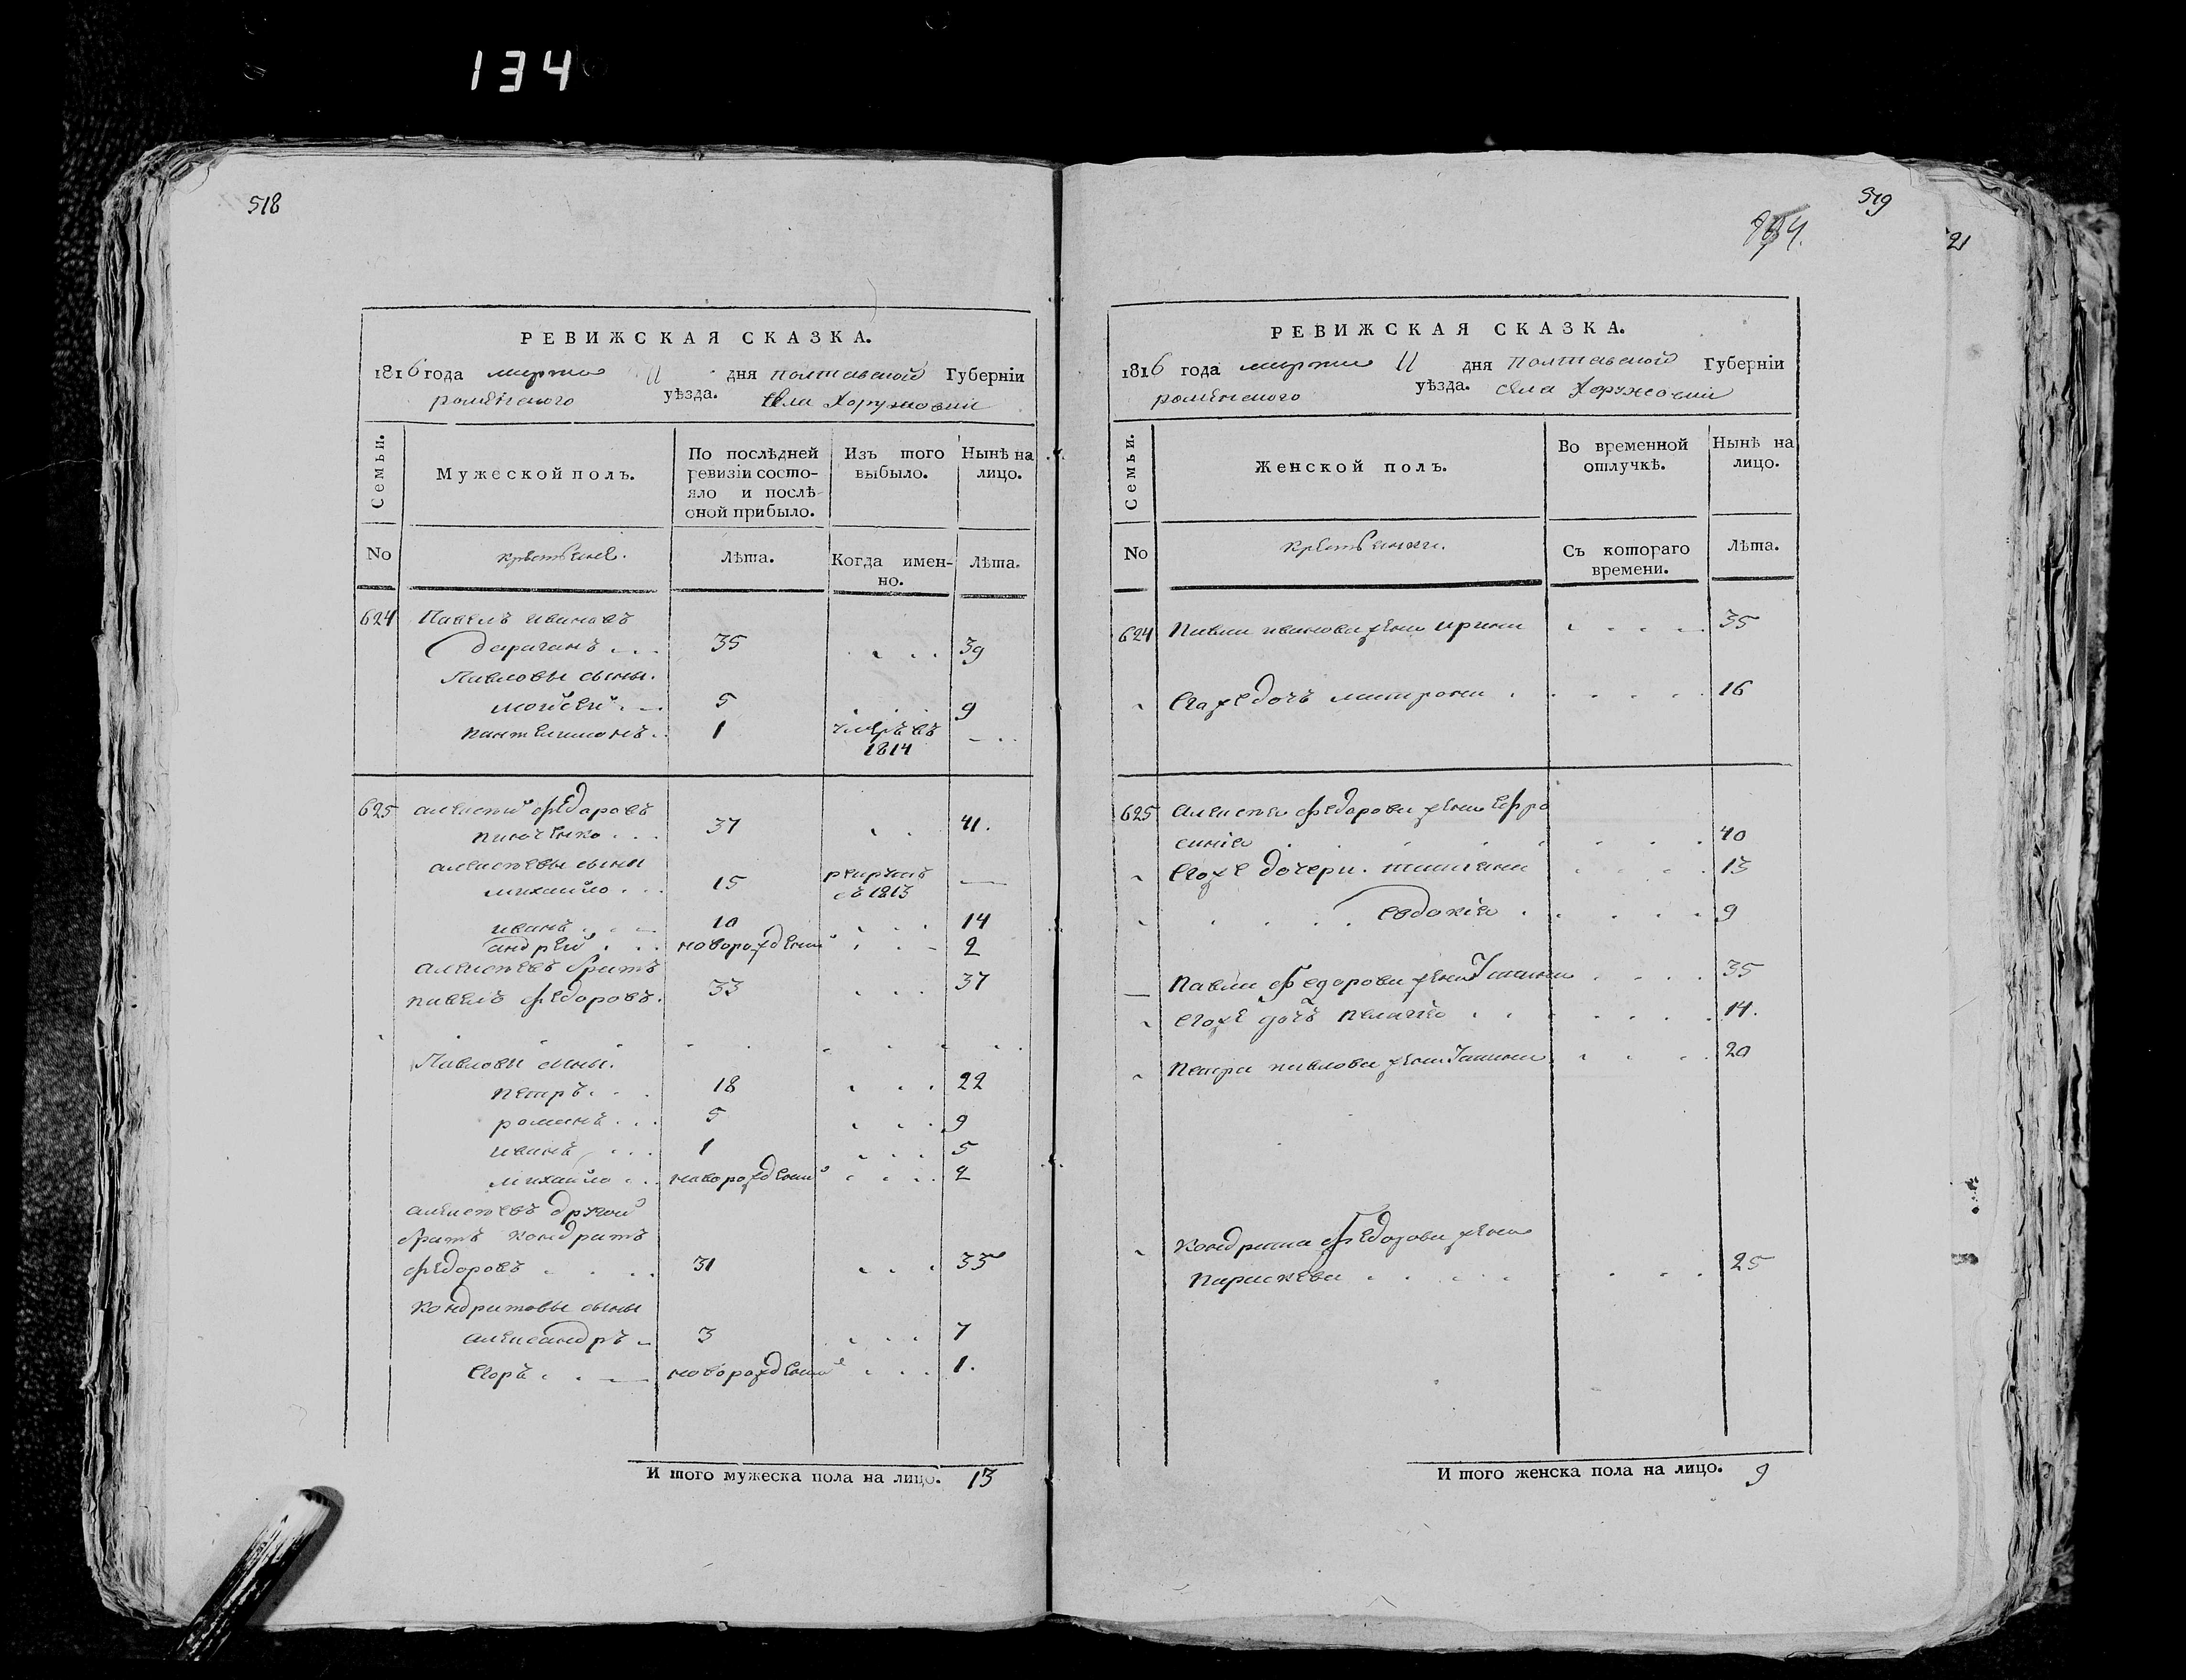 134
518
РЕВИЖСКАЯ СКАЗКА.
1816 года марта 11 дня Полтавской Губерніи
роменского уѣзда. села Хоружовки
Семьи.
Мужеской полъ.
По послѣдней ревизіи состояло и послѣ оной прибыло.
Изъ того выбыло.
Нынѣ на лицо.
No
крестьяне.
Лѣта.
Когда именно.
Лѣта.
624 Павелъ ивановъ
дараганъ . . . 35 . . . 39
Павловы сыны.
мойсей . — 5 . . . 9
пантелимонъ . . 1 умре въ 1814 — . .
625 алексѣй федоровъ
пинченко . . . 37 . . 41.
алексѣевы сыны
михайло . . . 15 рекрутъ въ 1813 —
иванъ . . — 10 . . . 14
андрей . . . новорожденный . . – 2
алексѣевъ братъ
павелъ федоровъ. 33 . . . 37
Павловы сыны.
петръ . . . 18 . . . 22
романъ . . . 5 . . . 9
иванъ . . . 1 . . . 5
михайло . . . новорожденный . . . 2
алексѣевъ другой
братъ кондратъ
федоровъ . . . . 31 . . . 35
Кондратовы сыны
александръ – 3 . . . 7
Егоръ . . — новорожденный . . . 1.
И того мужеска пола на лицо. 13
519
21
РЕВИЖСКАЯ СКАЗКА.
1816 года марта 11 дня Полтавской Губерніи
роменского уѣзда. села Хоружовки
Семьи.
Женской полъ.
Во временной отлучкѣ.
Нынѣ на лицо.
No
крестьянки.
Съ котораго времени.
Лѣта.
624 Павла иванова жена ирина . . . . 35
Егоже дочь матрона . . . . . 16
625 алексѣя федорова жена Ефро
синія . . . . . . . . 40
Егоже дочери. татіана . . . . 13
. . . . Евдокія . . . . . 9
— Павла федорова жена Татіана . . . . 35
Егоже дочь пелагія . . . . . . . 14.
Петра павлова жена Татіана . . . . 20
Кондрата федорова жена
параскева . . . . . . . . 25
И того женска пола на лицо. 9